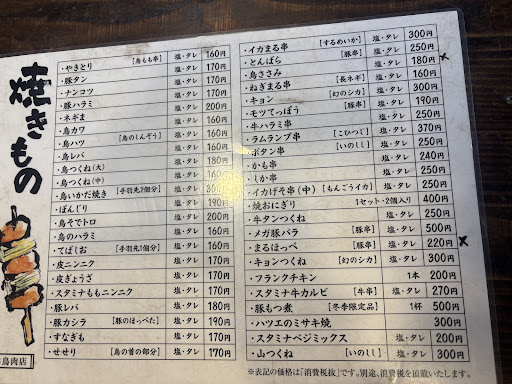 焼きもの
・やきとり [鳥もも串] 塩・タレ 160円
・豚タン 塩・タレ 170円
・ナンコツ 塩・タレ 170円
・豚ハラミ 塩・タレ 170円
・ネギま 塩・タレ 200円
・鳥カワ 塩・タレ 160円
・鳥ハツ [鳥のしんぞう] 塩・タレ 160円
・鳥レバ 塩・タレ 160円
・鳥つくね(大) 塩・タレ 180円
・鳥つくね(中) 塩・タレ 160円
・鳥いかだ焼き [手羽先2個分] 塩・タレ 300円
・ぼんじり 塩・タレ 190円
・鳥そでトロ 塩・タレ 200円
・鳥のハラミ 塩・タレ 160円
・てばしお [手羽先1個分] 塩・タレ 160円
・皮ニンニク 塩・タレ 170円
・皮ぎょうざ 塩・タレ 170円
・スタミナももニンニク 塩・タレ 170円
・豚レバ 塩・タレ 180円
・豚カシラ [豚のほっぺた] 塩・タレ 190円
・すなぎも 塩・タレ 170円
・せせり [鳥の首の部分] 塩・タレ 170円
・イカまる串 [するめいか] 塩・タレ 300円
・とんばら [豚串] 塩・タレ 250円
・鳥ささみ 塩・タレ 180円
・ねぎまる串 [長ネギ] 塩・タレ 160円
・キョン [幻のシカ] 塩・タレ 300円
・モツてっぽう [豚串] 塩・タレ 190円
・牛ハラミ串 塩・タレ 250円
・ラムランプ串 [こひつじ] 塩・タレ 370円
・ボタン串 [いのしし] 塩・タレ 250円
・かも串 塩・タレ 240円
・しか串 塩・タレ 250円
・イカげそ串(中) [もんごうイカ] 塩・タレ 250円
・焼おにぎり 1セット・2個入り 400円
・牛タンつくね 塩・タレ 250円
・メガ豚バラ [豚串] 塩・タレ 500円
・まるほっぺ [豚串] 塩・タレ 220円
・キョンつくね [幻のシカ] 塩・タレ 300円
・フランクチキン 1本 200円
・スタミナ牛カルビ [牛串] 塩・タレ 270円
・豚もつ煮 [冬季限定品] 1杯 500円
・ハツエのミサキ焼 300円
・スタミナベジミックス 塩・タレ 200円
・山つくね [いのしし] 塩・タレ 250円
※表記の価格は「消費税抜」です。別途、消費税を頂戴致します。
鳥肉店